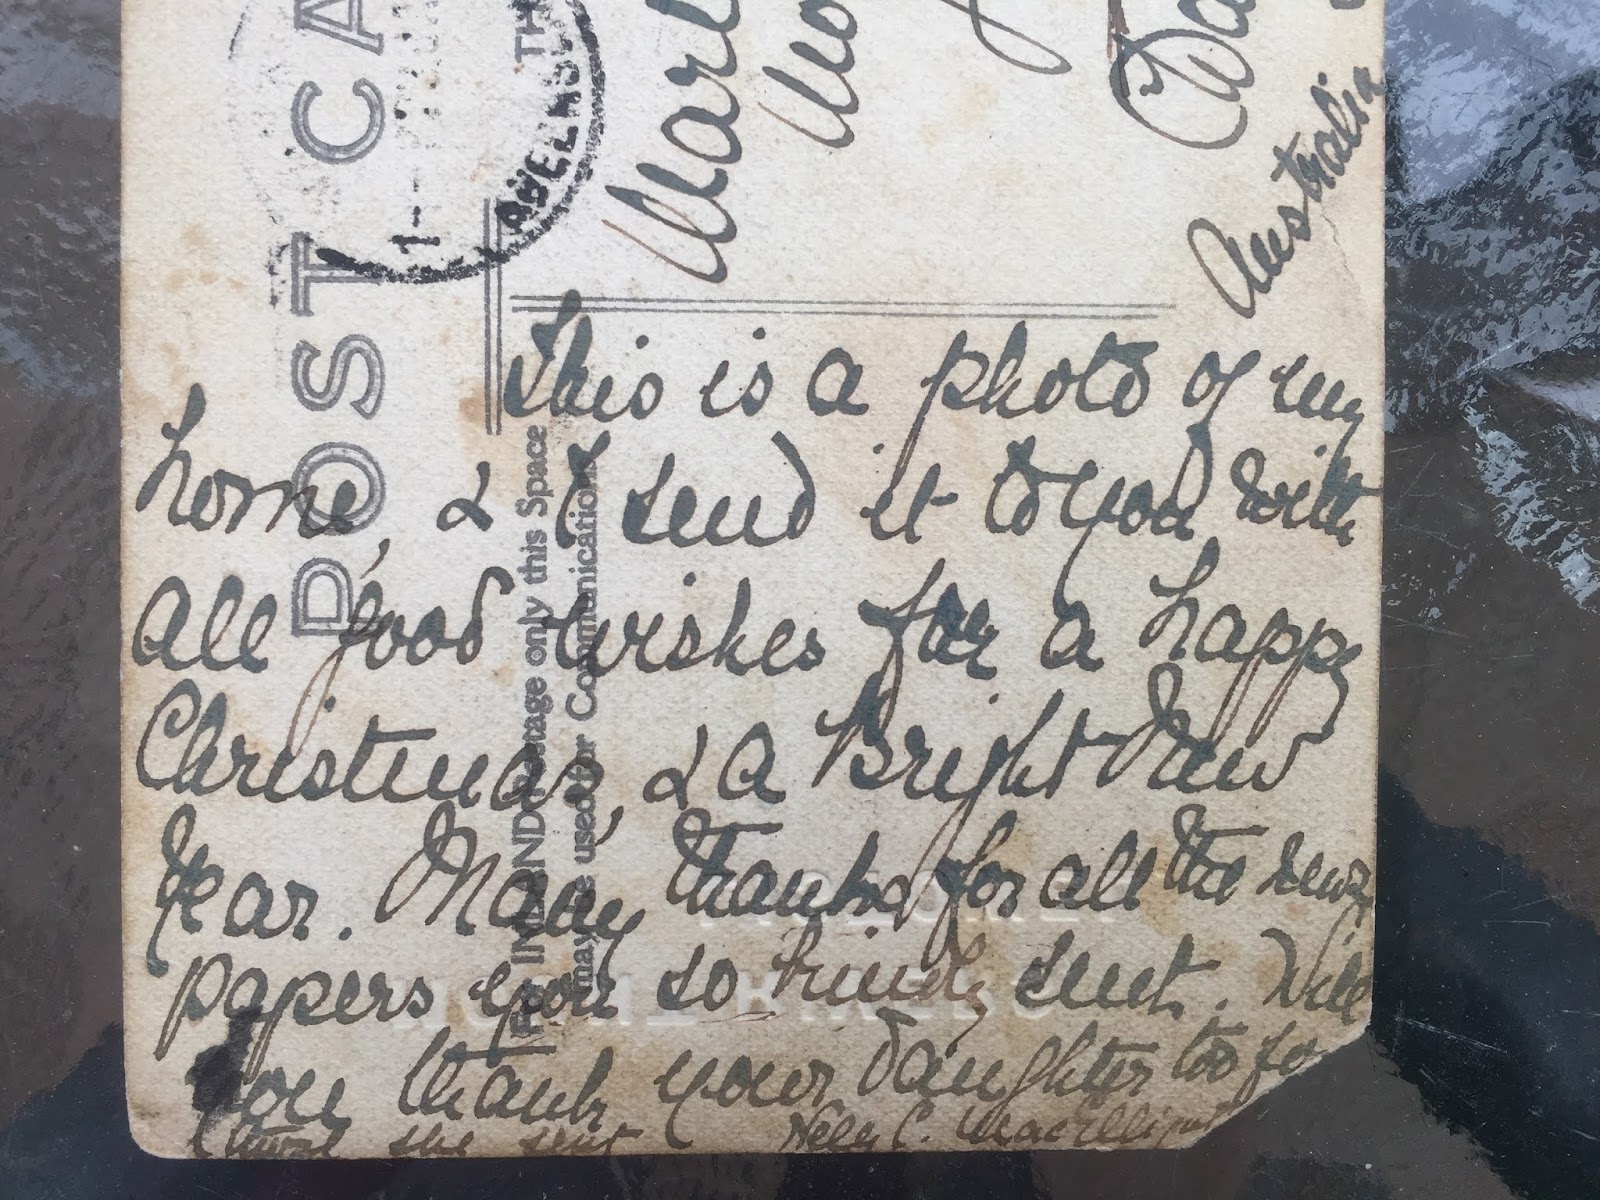 POST CA
1—
ABELNSU
TH
Marl
Australia
FOR INLAND Postage only this Space
may be used for Communications
This is a photo of my
home, & I send it to you with
all good wishes for a happy
Christmas, & a Bright New
Year. Many thanks for all the news
papers you so kindly sent. Will
you thank your Daughter too fo
those she sent
Nelly C. MacElliput